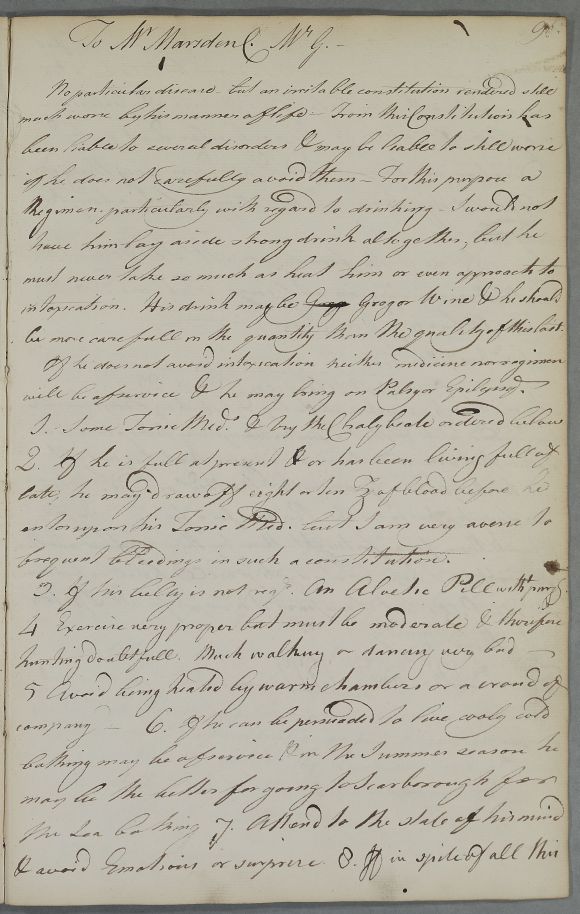 To Mr. Marsden C. Mr G. —
No particular disease — but an irritable constitution rendered still
much worse by his manner of life — From this Constitution has
been liable to several disorders & may be liable to still worse
if he does not carefully avoid them — For this purpose a
Regimen, particularly with regard to drinking — I would not
have him lay aside strong drink altogether, but he
must never take so much as heat him or even approach to
intoxication. His drink may be Grog or Wine & he should
be more carefull in the quantity than the quality of this last.
If he does not avoid intoxication neither medicine nor regimen
will be of service & he may bring on Palsy or Epilepsy.
1. Some Tonic Med. & try the Chalybeate ordered below
2. If he is full at present & or has been living full of
late, he may draw off eight or ten ℥ of blood before he
enters upon his Tonic Med. but I am very averse to
frequent bleedings in such a constitution.
3. If his belly is not reg. An Aloetic Pill
4 Exercise very proper but must be moderate & therefore
hunting doubtfull. Much walking or dancing very bad —
5 Avoid being heated by warm chambers or a crowd of
company — 6. If he can be persuaded to live cooly cold
bathing may be of service & in the Summer season he
may be the better for going to Scarborough for
the Sea bathing 7. Attend to the state of his mind
& avoid Emotions or surprize. 8. If in spite of all this